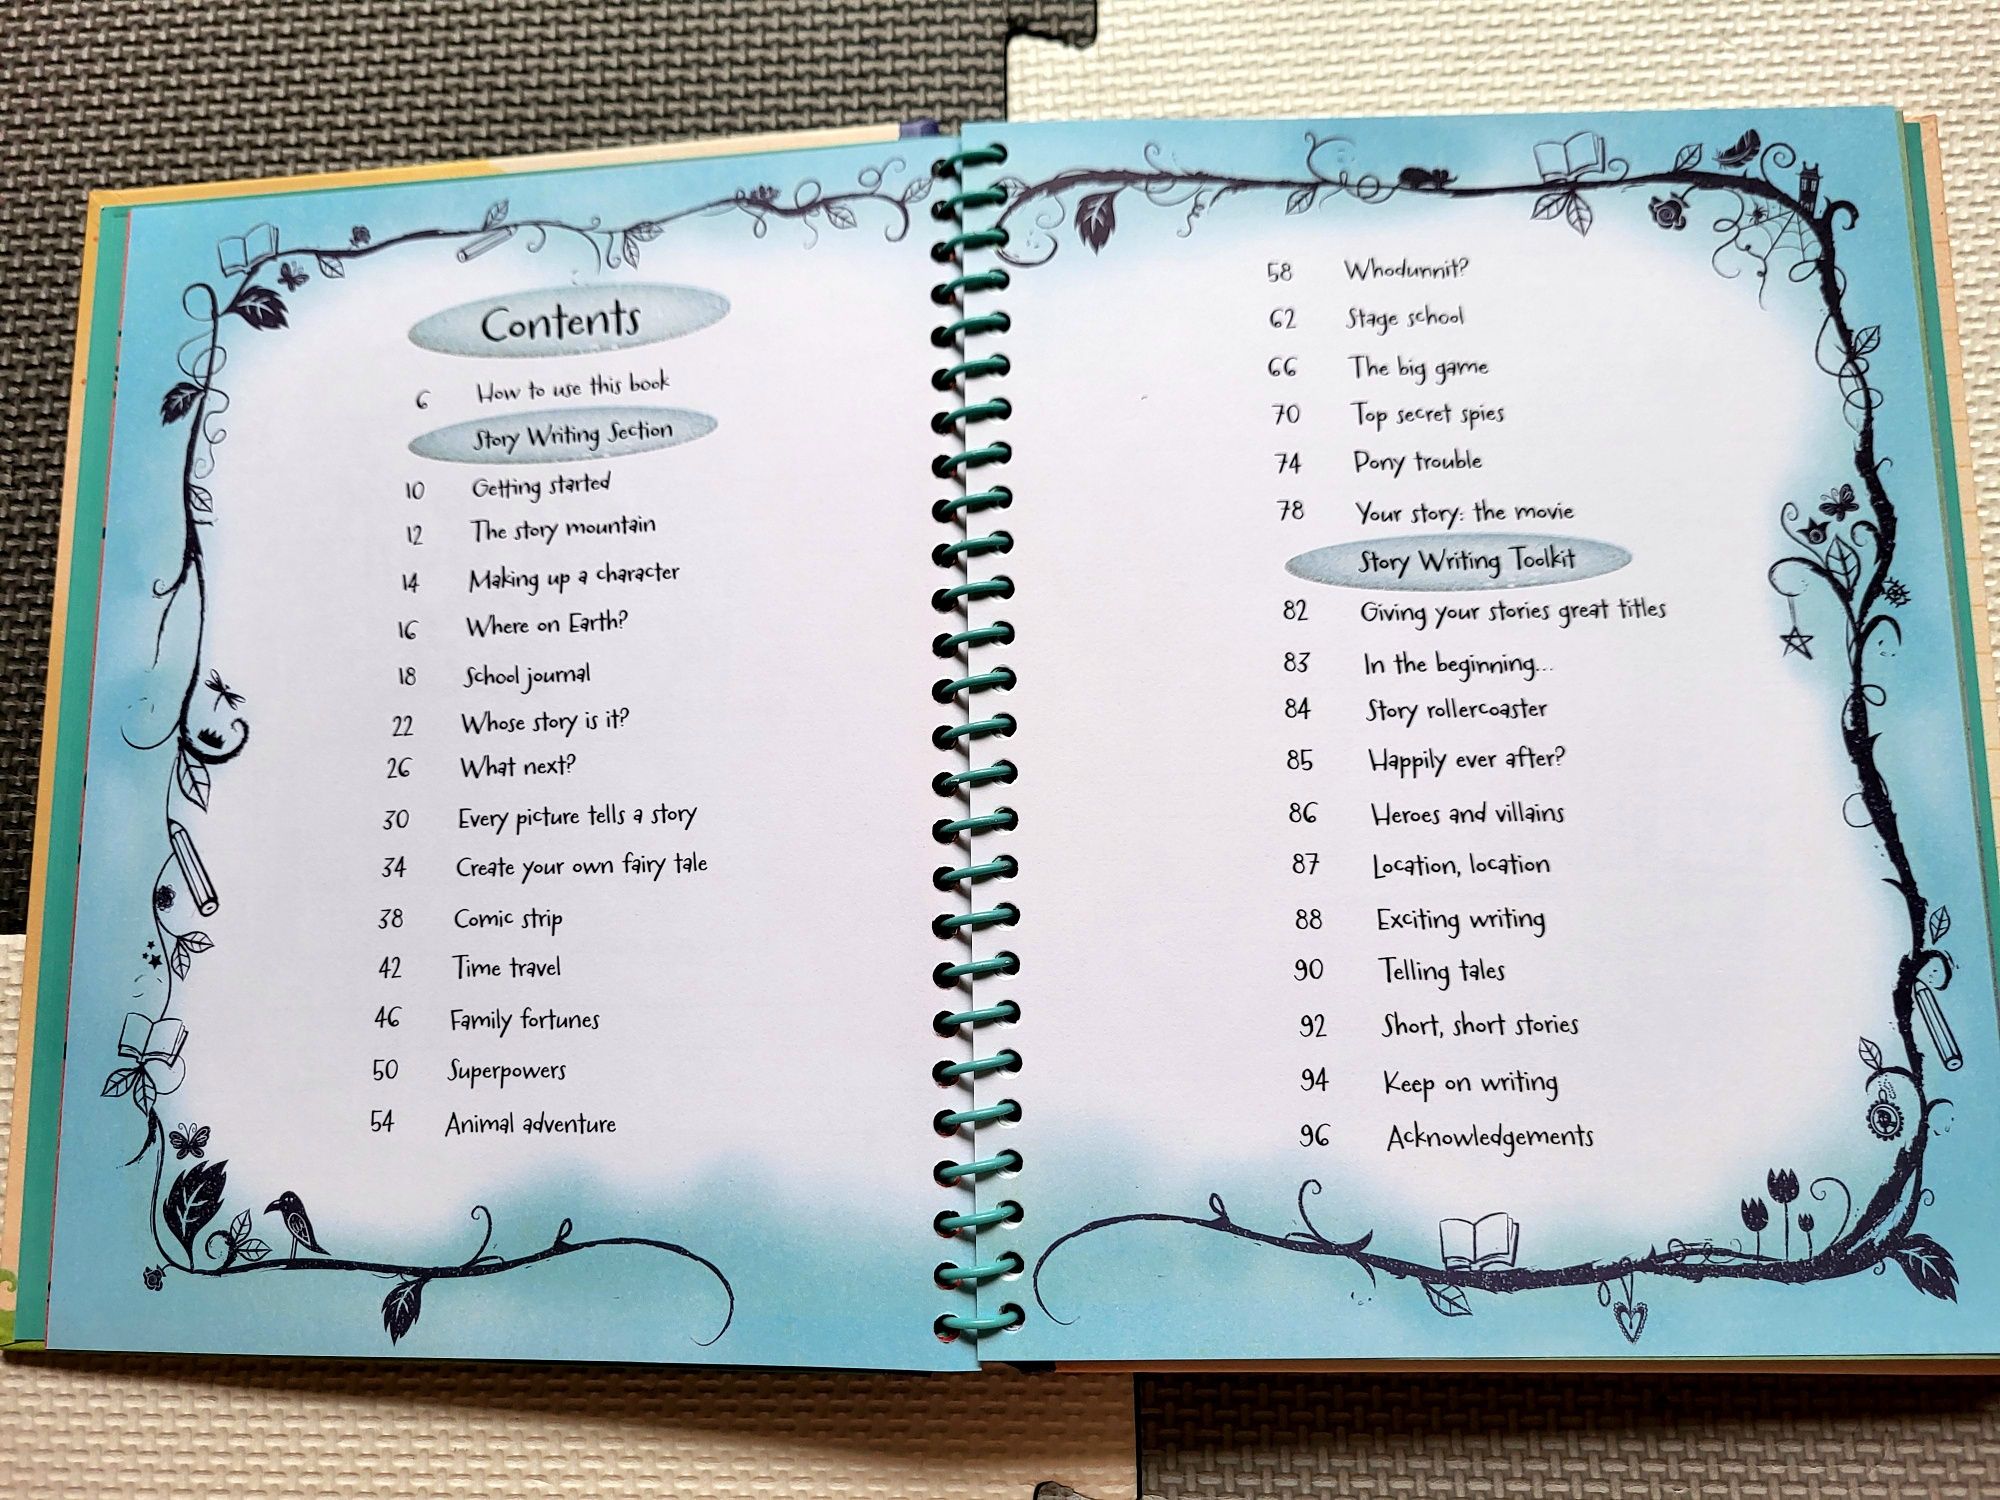 Contents
6 How to use this book
Story Writing Section
10 Getting started
12 The story mountain
14 Making up a character
16 Where on Earth?
18 School journal
22 Whose story is it?
26 What next?
30 Every picture tells a story
34 Create your own fairy tale
38 Comic strip
42 Time travel
46 Family fortunes
50 Superpowers
54 Animal adventure
58 Whodunnit?
62 Stage school
66 The big game
70 Top secret spies
74 Pony trouble
78 Your story: the movie
Story Writing Toolkit
82 Giving your stories great titles
83 In the beginning...
84 Story rollercoaster
85 Happily ever after?
86 Heroes and villains
87 Location, location
88 Exciting writing
90 Telling tales
92 Short, short stories
94 Keep on writing
96 Acknowledgements